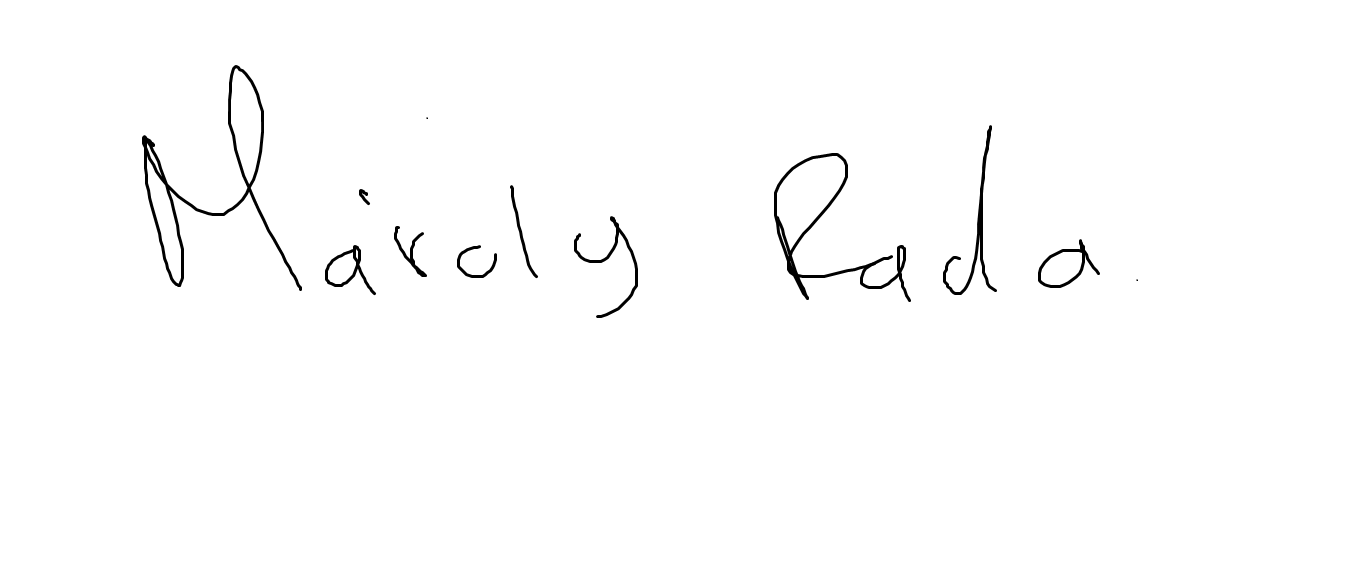 Mároly Rada